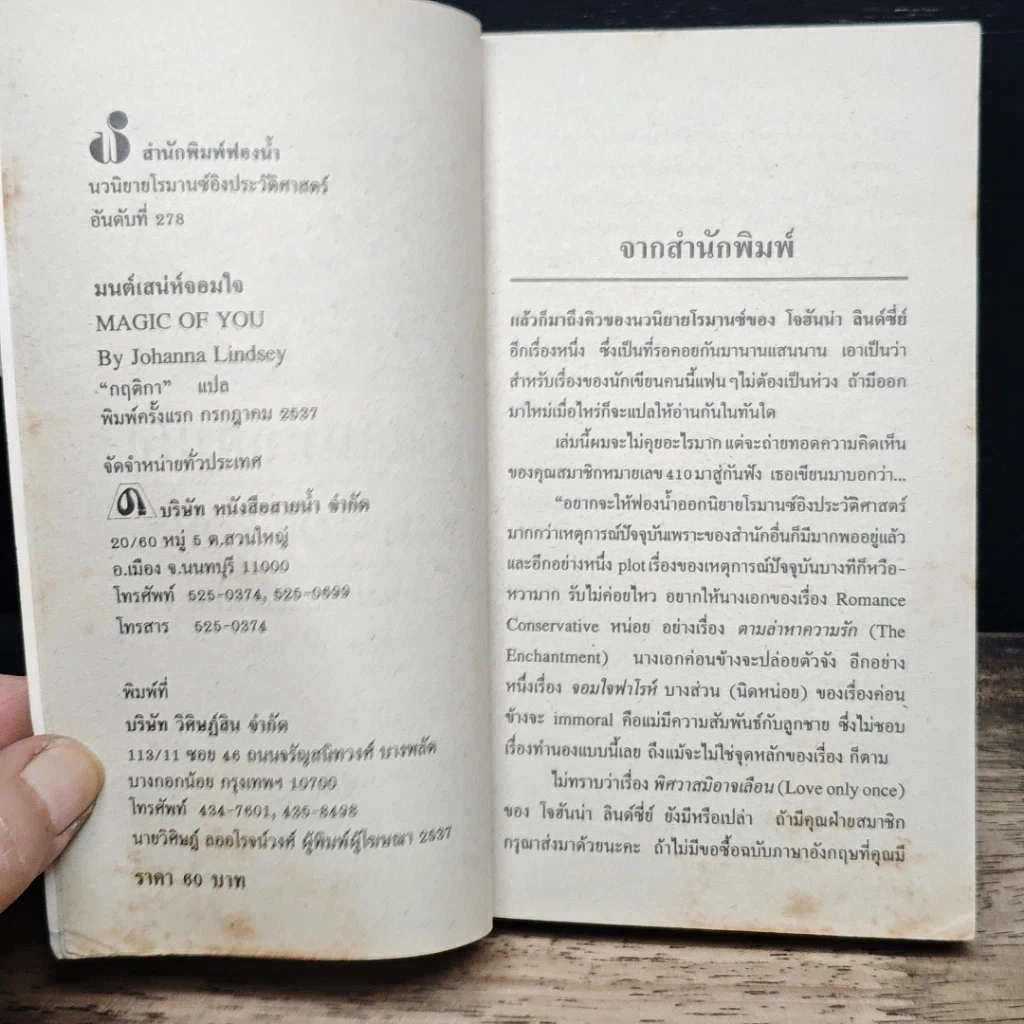 สำนักพิมพ์ฟองน้ำ
นวนิยายโรมานซ์อิงประวัติศาสตร์
อันดับที่ 278
มนต์เสน่ห์จอมใจ
MAGIC OF YOU
By Johanna Lindsey
“กฤติกา” แปล
พิมพ์ครั้งแรก กรกฎาคม 2537
จัดจำหน่ายทั่วประเทศ
บริษัท หนังสือสายน้ำ จำกัด
20/60 หมู่ 5 ต.สวนใหญ่
อ.เมือง จ.นนทบุรี 11000
โทรศัพท์ 525-0374, 525-0699
โทรสาร 525-0374
พิมพ์ที่
บริษัท วิศิษฎ์สิน จำกัด
113/11 ซอย 46 ถนนจรัญสนิทวงศ์ บางพลัด
บางกอกน้อย กรุงเทพฯ 10700
โทรศัพท์ 434-7601, 435-8498
นายวิศิษฎ์ ลออโรจน์วงศ์ ผู้พิมพ์ผู้โฆษณา 2537
ราคา 60 บาท
จากสำนักพิมพ์
แล้วก็มาถึงคิวของนวนิยายโรมานซ์ของ โจฮันน่า ลินด์ซี่ย์
อีกเรื่องหนึ่ง ซึ่งเป็นที่รอคอยกันมานานแสนนาน เอาเป็นว่า
สำหรับเรื่องของนักเขียนคนนี้แฟนๆไม่ต้องเป็นห่วง ถ้ามีออก
มาใหม่เมื่อไหร่ก็จะแปลให้อ่านกันในทันใด
เล่มนี้ผมจะไม่คุยอะไรมาก แต่จะถ่ายทอดความคิดเห็น
ของคุณสมาชิกหมายเลข 410 มาสู่กันฟัง เธอเขียนมาบอกว่า...
“อยากจะให้ฟองน้ำออกนิยายโรมานซ์อิงประวัติศาสตร์
มากกว่าเหตุการณ์ปัจจุบันเพราะของสำนักอื่นก็มีมากพออยู่แล้ว
และอีกอย่างหนึ่ง plot เรื่องของเหตุการณ์ปัจจุบันบางทีก็หวือ-
หวามาก รับไม่ค่อยไหว อยากให้นางเอกของเรื่อง Romance
Conservative หน่อย อย่างเรื่อง ตามล่าหาความรัก (The
Enchantment) นางเอกค่อนข้างจะปล่อยตัวจัง อีกอย่าง
หนึ่งเรื่อง จอมใจฟาโรห์ บางส่วน (นิดหน่อย) ของเรื่องค่อน
ข้างจะ immoral คือแม่มีความสัมพันธ์กับลูกชาย ซึ่งไม่ชอบ
เรื่องทำนองแบบนี้เลย ถึงแม้จะไม่ใช่จุดหลักของเรื่อง ก็ตาม
ไม่ทราบว่าเรื่อง พิศวาสมิอาจเลือน (Love only once)
ของ โจฮันน่า ลินด์ซี่ย์ ยังมีหรือเปล่า ถ้ามีคุณฝ่ายสมาชิก
กรุณาส่งมาด้วยนะคะ ถ้าไม่มีขอซื้อฉบับภาษาอังกฤษที่คุณมี